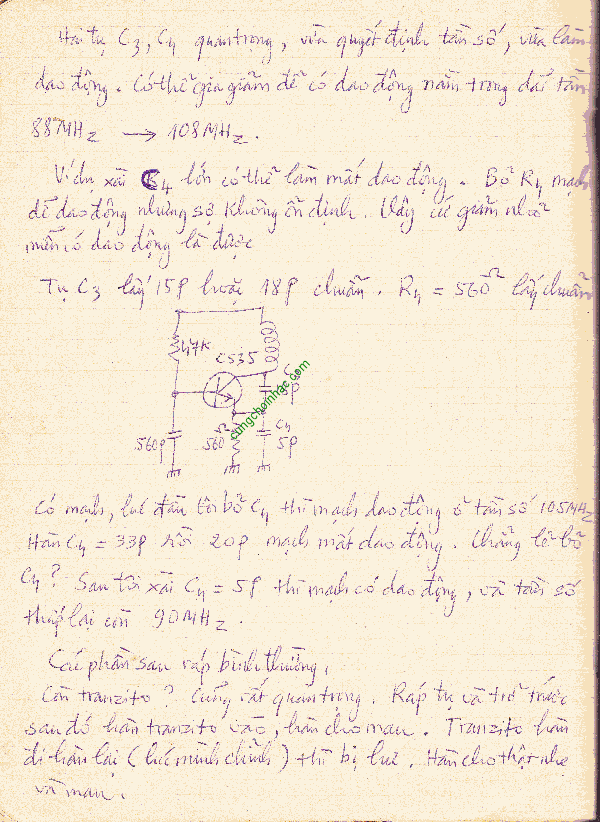 Hai tụ C3, C4 quan trọng, vừa quyết định tần số, vừa làm
dao động. Có thể gia giảm để có dao động nằm trong dải tần
88MHz → 108MHz.
Ví dụ xài C4 lớn có thể làm mất dao động. Bỏ R4 mạch
dễ dao động nhưng sợ không ổn định. Vậy cứ giảm nhỏ
miễn có dao động là được
Tụ C3 lấy 15p hoặc 18p chuẩn. R4 = 560Ω lấy chuẩn
47K
C535
560p
560Ω
C4
5p
cungchoinhac.com
Có mạch, lúc đầu tôi bỏ C4 thì mạch dao động ở tần số 105MHz
Hàn C4 = 33p rồi 20p mạch mất dao động. Chẳng lẽ bỏ
C4? Sau tôi xài C4 = 5p thì mạch có dao động, và tần số
thấp lại còn 90MHz.
Các phần sau ráp bình thường,
Còn tranzito? Cũng rất quan trọng. Ráp tụ và trở trước
sau đó hàn tranzito vào, hàn cho mau. Tranzito hàn
đi hàn lại (lúc mình chỉnh) thì bị hư. Hàn cho thật nhẹ
và mau.